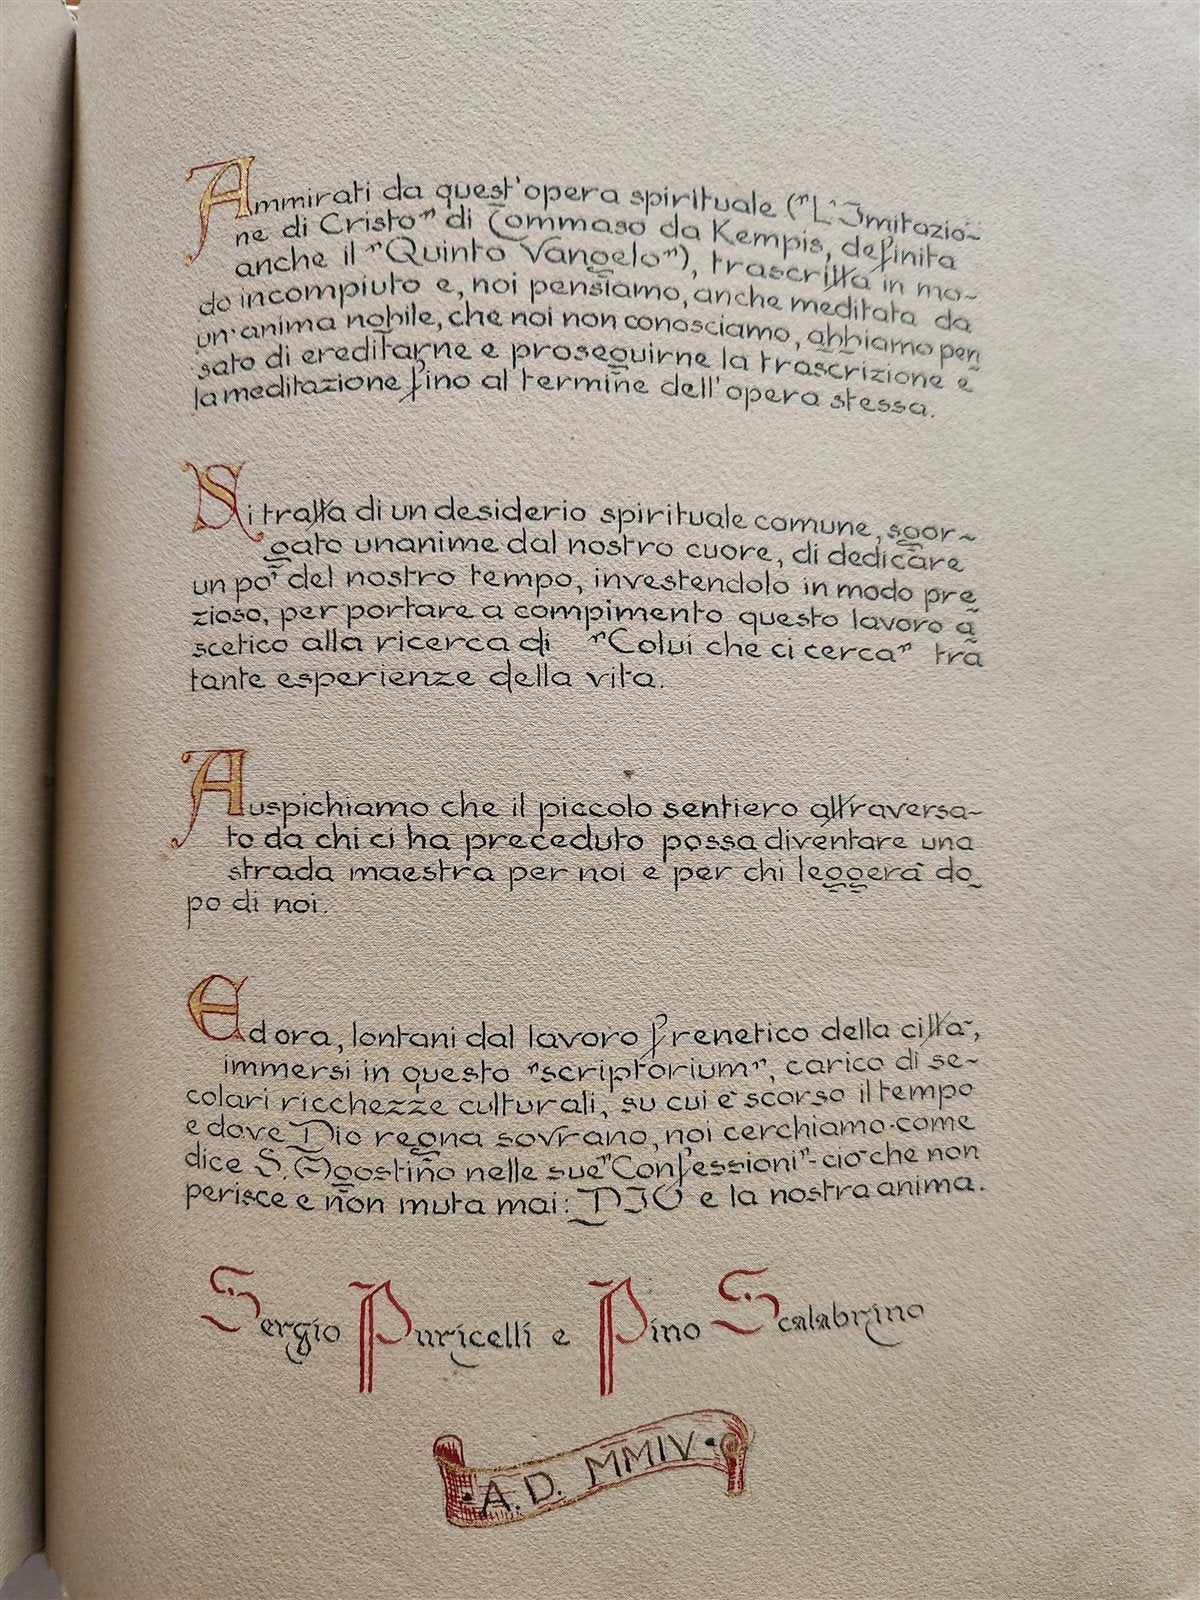 Ammirati da quest'opera spirituale ("L'Imitazio-
ne di Cristo" di Tommaso da Kempis, definita
anche il "Quinto Vangelo"), trascritta in mo-
do incompiuto e, noi pensiamo, anche meditata da
un'anima nobile, che noi non conosciamo, abbiamo pen
sato di ereditarne e proseguirne la trascrizione e
la meditazione fino al termine dell'opera stessa.
Si tratta di un desiderio spirituale comune, sgor-
gato unanime dal nostro cuore, di dedicare
un po' del nostro tempo, investendolo in modo pre
zioso, per portare a compimento questo lavoro a
scetico alla ricerca di "Colui che ci cerca" tra
tante esperienze della vita.
Auspichiamo che il piccolo sentiero attraversa-
to da chi ci ha preceduto possa diventare una
strada maestra per noi e per chi leggerà do-
po di noi.
Ed ora, lontani dal lavoro frenetico della città,
immersi in questo "scriptorium", carico di se-
colari ricchezze culturali, su cui è scorso il tempo
e dove Dio regna sovrano, noi cerchiamo-come
dice S. Agostino nelle sue "Confessioni"-ciò che non
perisce e non muta mai: DIO e la nostra anima.
Sergio Puricelli e Pino Scalabrino
·A.D. MMIV·